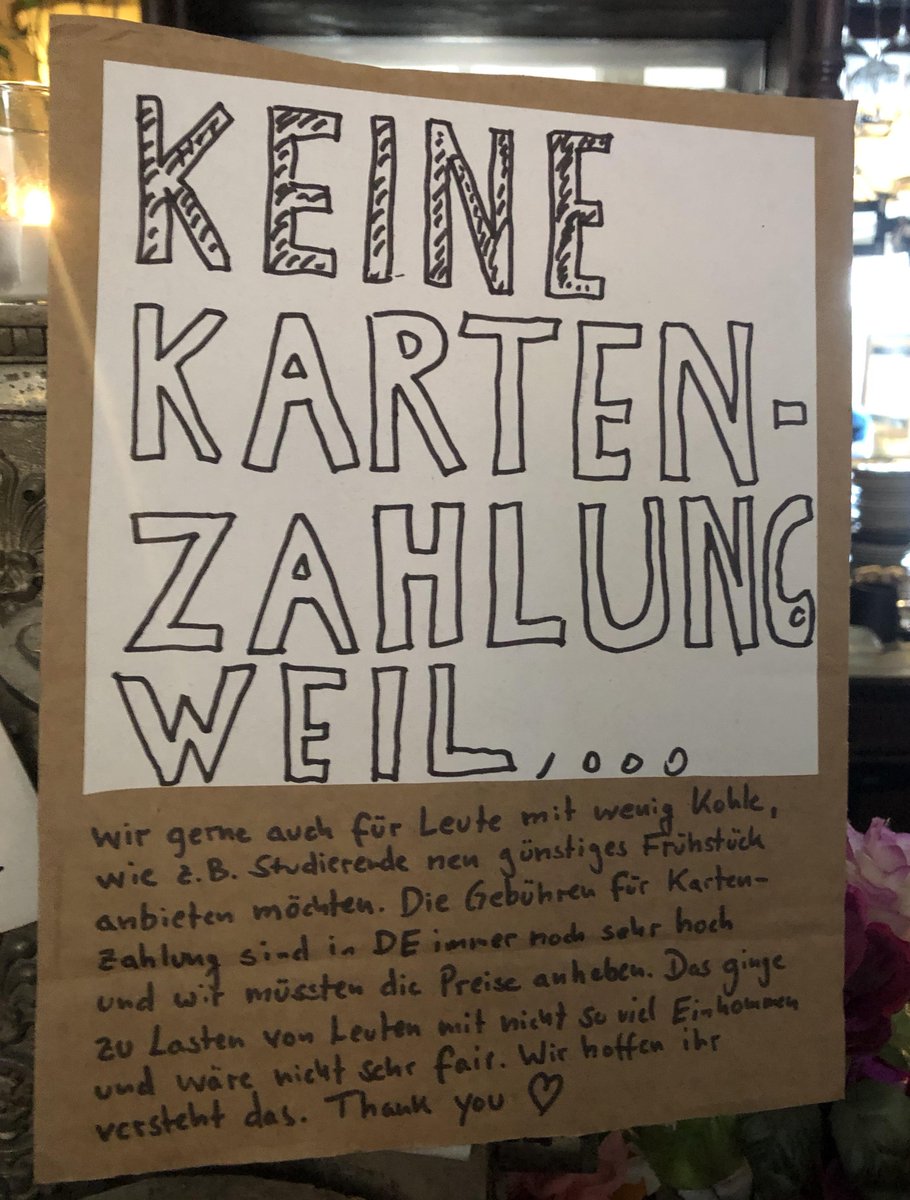 KEINE
KARTEN-
ZAHLUNG
WEIL,...
wir gerne auch für Leute mit wenig Kohle,
wie z.B. Studierende nen günstiges Frühstück
anbieten möchten. Die Gebühren für Karten-
zahlung sind in DE immer noch sehr hoch
und wir müssten die Preise anheben. Das ginge
zu Lasten von Leuten mit nicht so viel Einkommen
und wäre nicht sehr fair. Wir hoffen ihr
versteht das. Thank you ♡